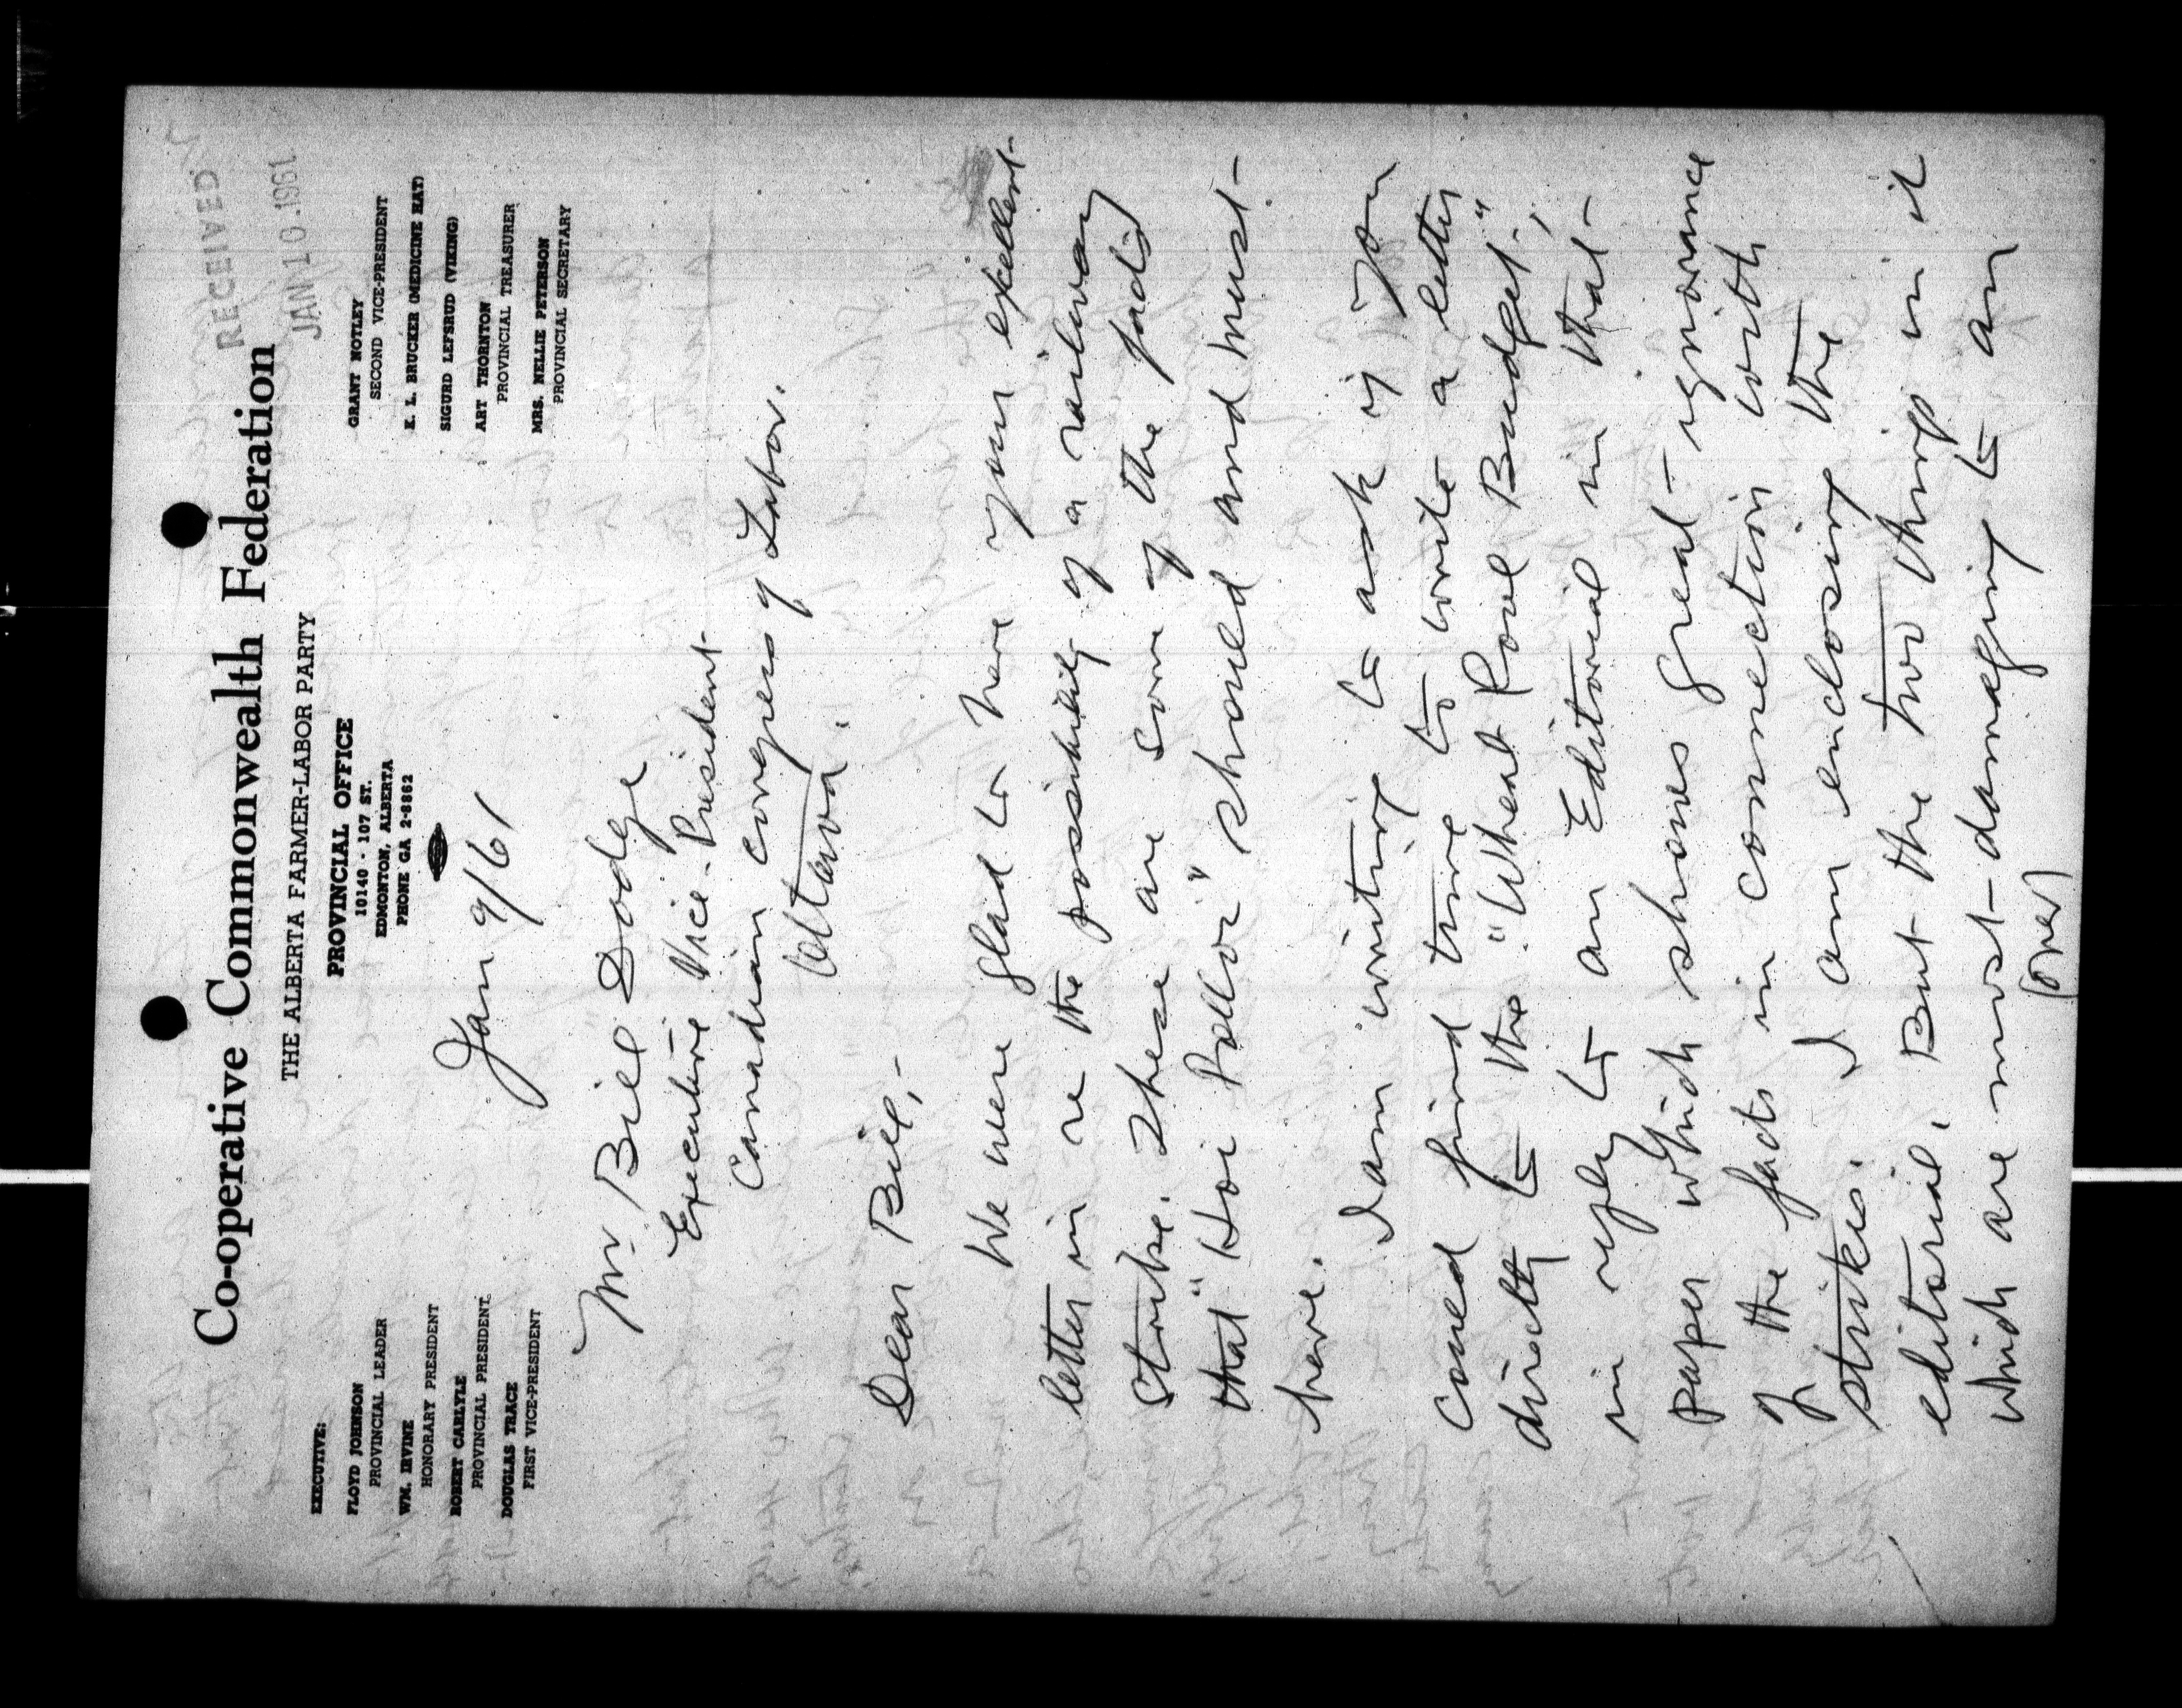 RECEIVED
JAN 10 1961
Co-operative Commonwealth Federation
THE ALBERTA FARMER-LABOR PARTY
PROVINCIAL OFFICE
10140 - 107 ST.
EDMONTON, ALBERTA
PHONE GA 2-8862
EXECUTIVE:
FLOYD JOHNSON
PROVINCIAL LEADER
WM. IRVINE
HONORARY PRESIDENT
ROBERT CARLYLE
PROVINCIAL PRESIDENT
DOUGLAS TRACE
FIRST VICE-PRESIDENT
GRANT NOTLEY
SECOND VICE-PRESIDENT
E. L. BRUCKER (MEDICINE HAT)
SIGURD LEFSRUD (VIKING)
ART THORNTON
PROVINCIAL TREASURER
MRS. NELLIE PETERSON
PROVINCIAL SECRETARY
Jan 9/61
Mr Bill Dodge
Executive Vice-President
Canadian Congress of Labor.
Ottawa.
Dear Bill,-
We were glad to have your excellent
letter in re the possibility of a railway
strike. These are some of the facts
that "Hoi Polloi" should and must
have.
I am writing to ask if you
could find time to write a letter
directly to the "Wheat Pool Budget",
in reply to an Editorial in that
paper which shows great ignorance
of the facts in connection with
strikes. I am enclosing the
editorial. But the two things in it
which are most damaging to an
(over)